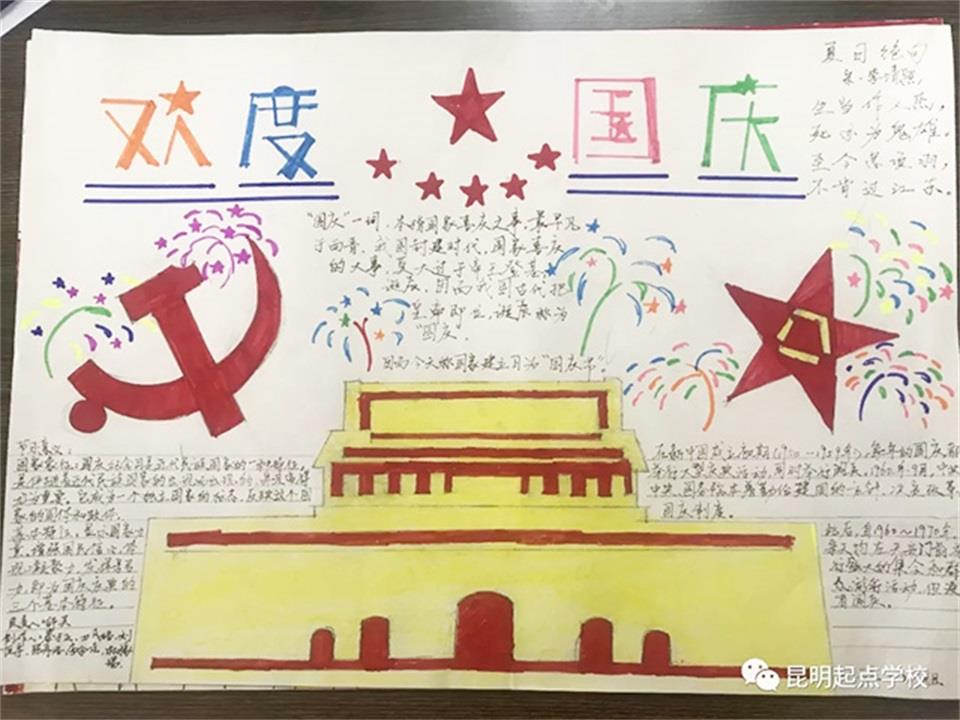 欢度国庆
夏日绝句
宋·李清照
生当作人杰,
死亦为鬼雄。
至今思项羽,
不肯过江东。
"国庆"一词,本指国家喜庆之事,最早见
于西晋。我国封建时代,国家喜庆
的大事,莫大过于帝王登基、
诞辰。因而我国古代把
皇帝即位、诞辰称为
"国庆。
因而今天称国家建立日为"国庆节"。
节示意义:
国家象征:国庆纪念日是近代民族国家的一种特征,
尤为重要。它成为一个独立国家的标志,反映这个国
家的国体和政体。
基本特征,显示国家力
量,增强国民信心,体
现凝聚力,发挥号召
力,即为国庆庆典的
三个基本特征。
在新中国成立初期(1950—1959年),每年的国庆都
举行大型庆典活动,同时举行阅兵。1960年9月,中央
国庆制度。
此后,自1960~1970年
每天均在天安门前举
行盛大的集会和群
众游行活动,但没
有阅兵。
昆明起点学校